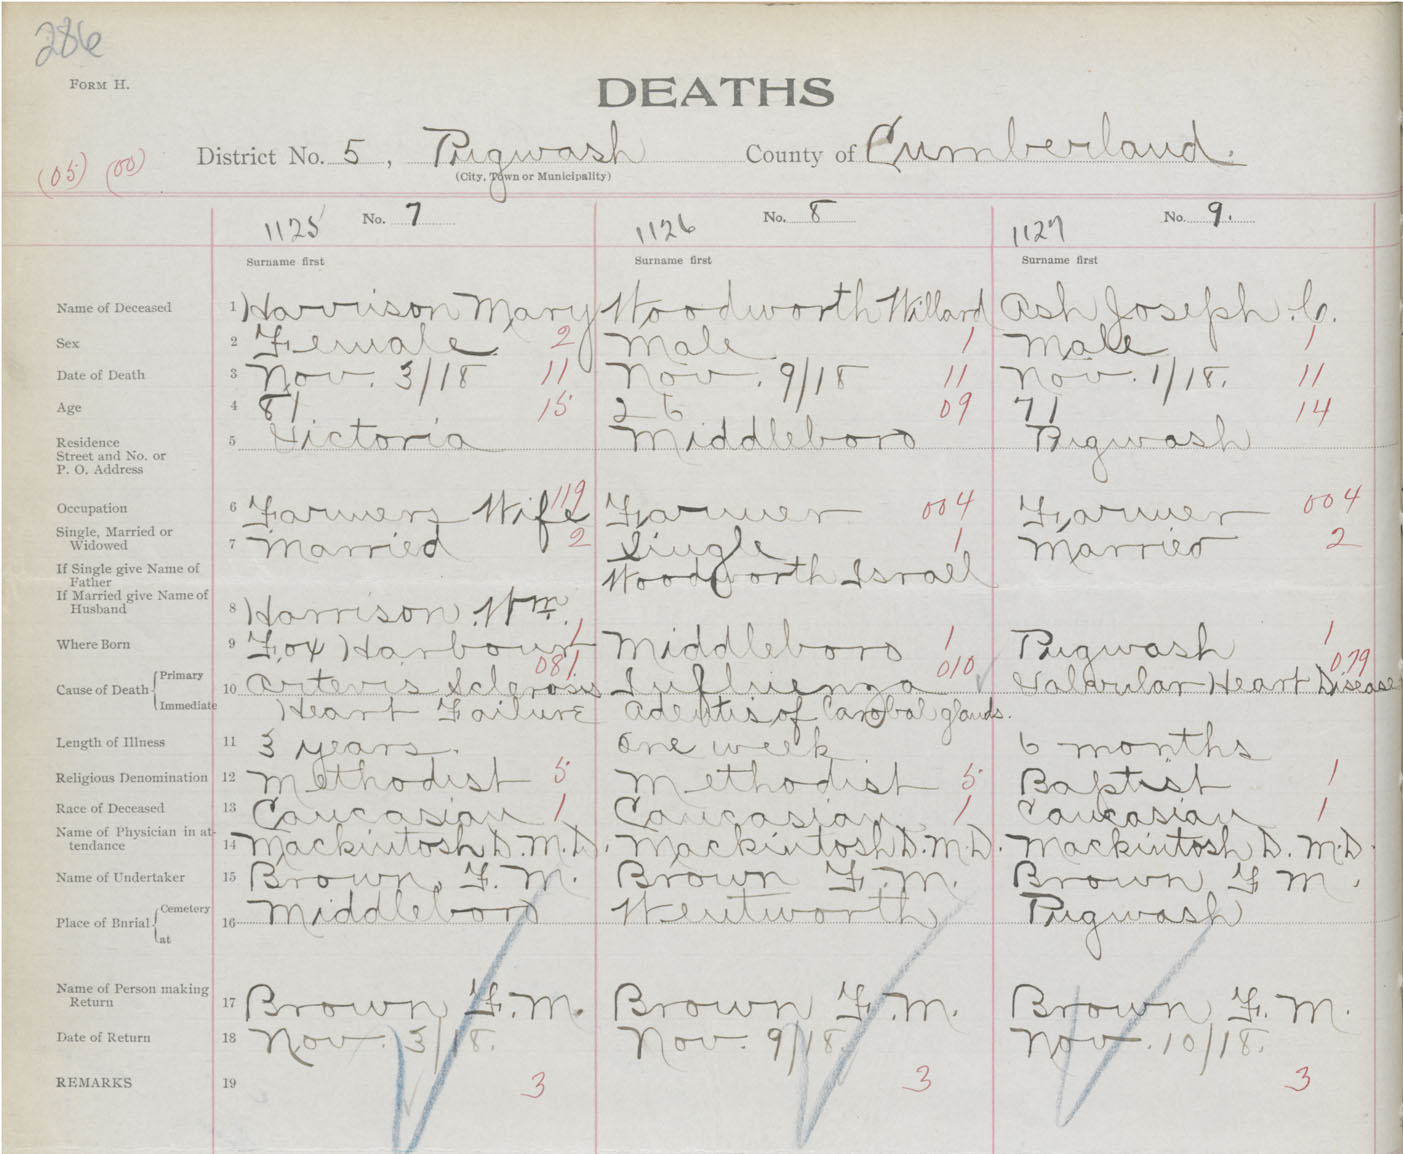 286
FORM H.
DEATHS
District No. 5, Pugwash County of Cumberland.
(City, Town or Municipality)
(05) (00)
No. 7 No. 8 No. 9.
1125 1126 1127
Surname first Surname first Surname first
Name of Deceased 1 Harrison Mary Woodworth Willard Ash Joseph C.
Sex 2 Female 2 Male 1 Male 1
Date of Death 3 Nov. 3/18 11 Nov. 9/18 11 Nov. 1/18. 11
Age 4 81 15 26 09 71 14
Residence 5 Victoria Middleboro Pugwash
Street and No. or
P. O. Address
119
Occupation 6 Farmers Wife Farmer 004 Farmer 004
Single, Married or
Widowed 7 Married 2 Single 1 Married 2
If Single give Name of
Father Woodworth Israel
If Married give Name of
Husband 8 Harrison Wm.
Where Born 9 Fox Harbour 1 Middleboro 1 Pugwash 1
081 010 079
Cause of Death Primary 10 Arteris Sclerosis Influenza Valvular Heart Disease
Immediate Heart Failure glands.
Length of Illness 11 3 years. One week 6 months
Religious Denomination 12 Methodist 5 Methodist 5 Baptist 1
Race of Deceased 13 Caucasian 1 Caucasian 1 Caucasian 1
Name of Physician in at-
tendance 14 Mackintosh D. M.D. Mackintosh D. M.D. Mackintosh D. M.D.
Name of Undertaker 15 Brown, F. M. Brown F. M. Brown F M.
Place of Burial Cemetery 16 Middleboro Wentworth Pugwash
at
Name of Person making
Return 17 Brown F. M. Brown F. M. Brown F. M.
Date of Return 18 Nov. 3/18. Nov. 9/18 Nov. 10/18.
REMARKS 19 3 3 3